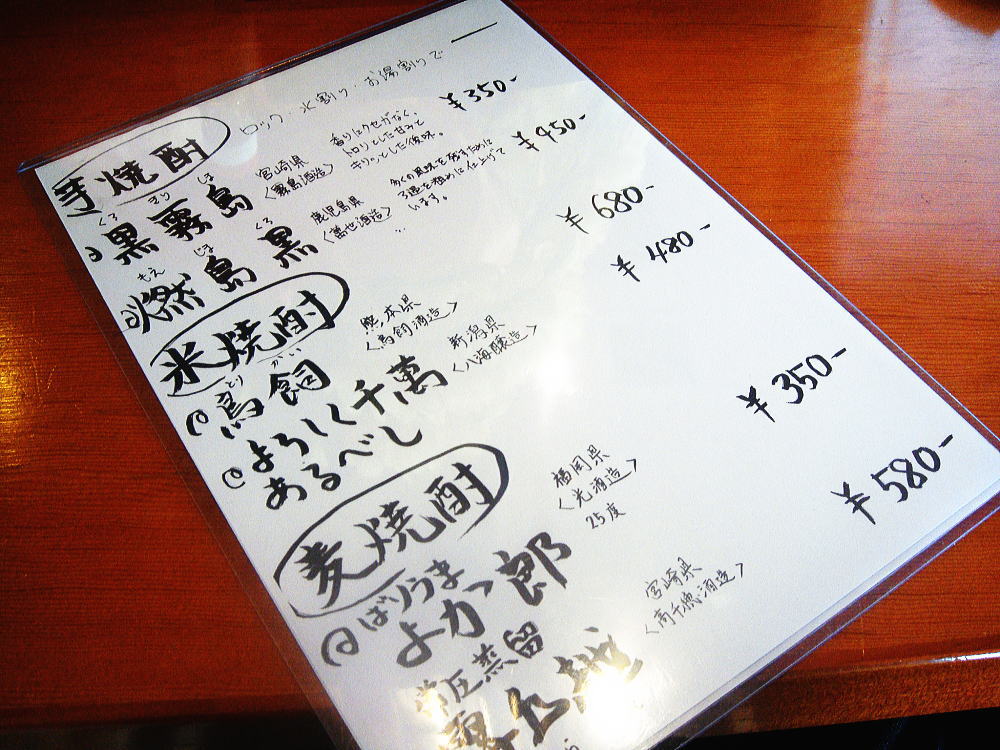 ロック・水割り・お湯割りで
芋焼酎
くろ きり しま
黒霧島
宮崎県
〈霧島酒造〉
香りにクセがなく、
トロリとした甘みと
キリッとした後味。
¥350-
もえ じま くろ
燃島黒
鹿児島県
〈萬世酒造〉
多くの風味を残すために
3週を粗めに仕上げて
います。
¥450-
米焼酎
とり かい
鳥飼
熊本県
〈鳥飼酒造〉
¥680-
よろしく千萬
あるべし
新潟県
〈八海醸造〉
¥480-
麦焼酎
ばりうま
よかっ郎
福岡県
〈光酒造〉
25度
¥350-
常圧蒸留
宮崎県
〈高千穂酒造〉
¥580-